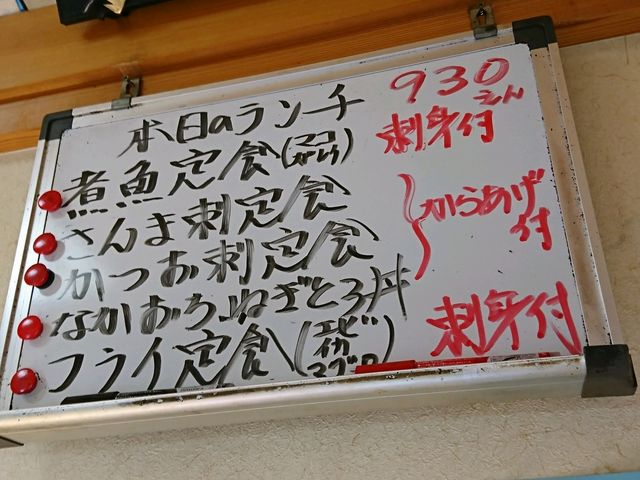 本日のランチ 930えん
煮魚定食( ) 刺身付
さんま刺定食
かつお刺定食 からあげ付
なかおち、ねぎとろ丼
フライ定食(エビ イカ マグロ) 刺身付